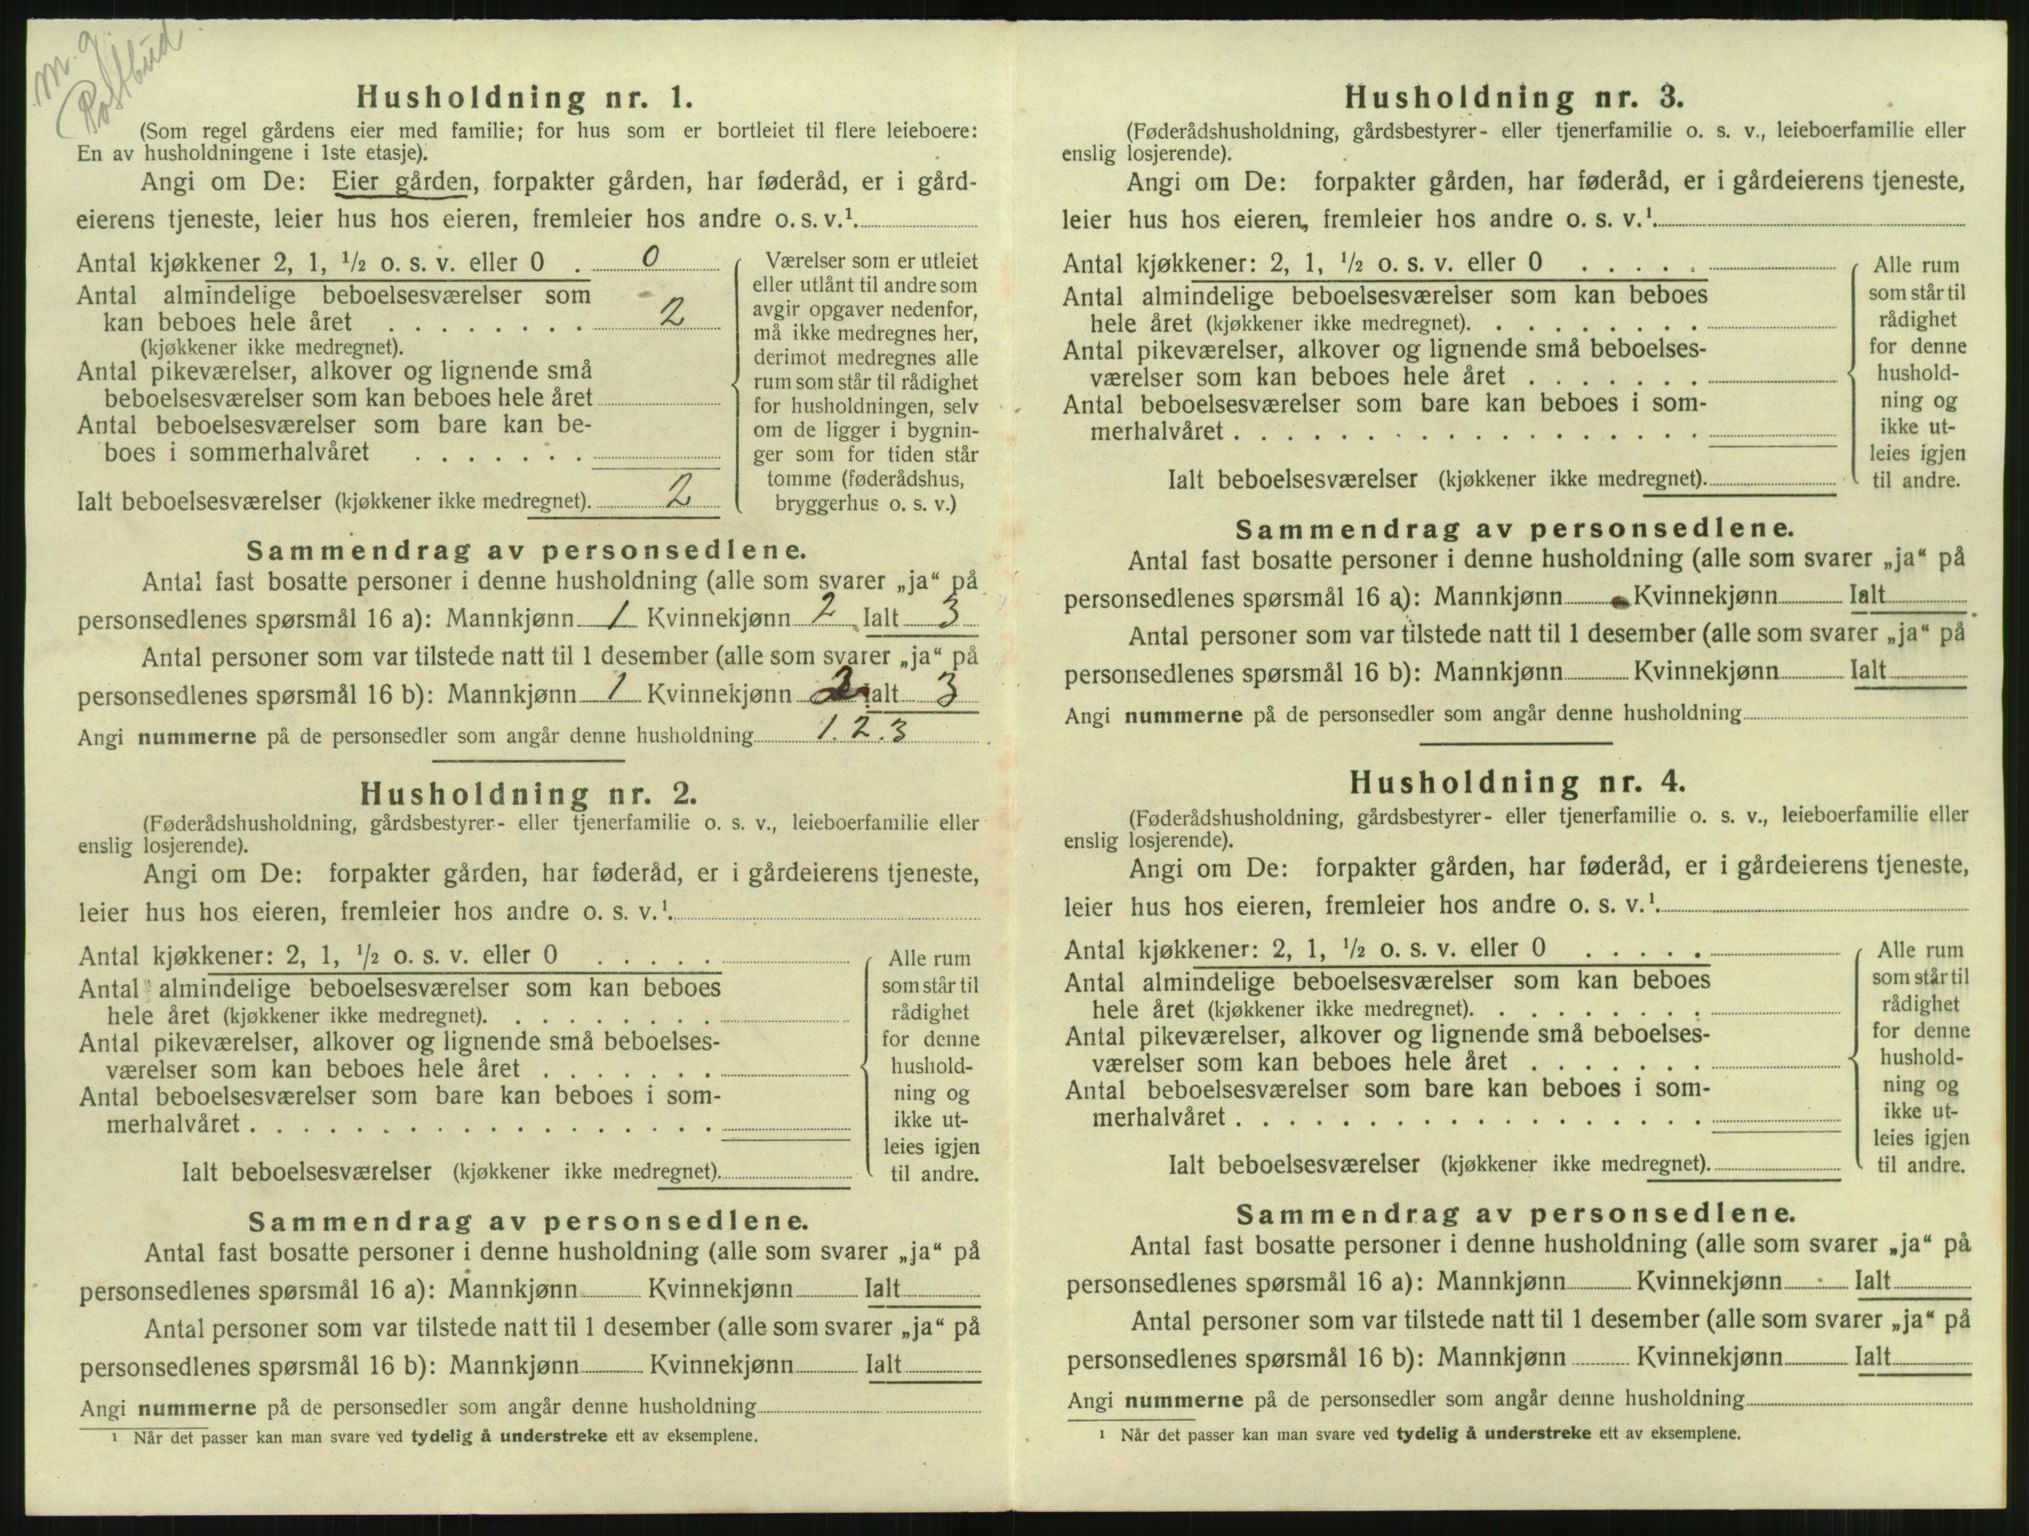 m. g.
Postbud
Husholdning nr. 1.
(Som regel gårdens eier med familie; for hus som er bortleiet til flere leieboere:
En av husholdningene i 1ste etasje).
Angi om De: Eier gården, forpakter gården, har føderåd, er i gård-
eierens tjeneste, leier hus hos eieren, fremleier hos andre o. s. v.¹
Antal kjøkkener 2, 1, ½ o. s. v. eller 0 . 0
Antal almindelige beboelsesværelser som
kan beboes hele året . . . . . . . . 2
(kjøkkener ikke medregnet).
Antal pikeværelser, alkover og lignende små
beboelsesværelser som kan beboes hele året
Antal beboelsesværelser som bare kan be-
boes i sommerhalvåret . . . . . . .
Ialt beboelsesværelser (kjøkkener ikke medregnet). 2
Værelser som er utleiet
eller utlånt til andre som
avgir opgaver nedenfor,
må ikke medregnes her,
derimot medregnes alle
rum som står til rådighet
for husholdningen, selv
om de ligger i bygnin-
ger som for tiden står
tomme (føderådshus,
bryggerhus o. s. v.)
Sammendrag av personsedlene.
Antal fast bosatte personer i denne husholdning (alle som svarer „ja“ på
personsedlenes spørsmål 16 a): Mannkjønn 1 Kvinnekjønn 2 Ialt 3
Antal personer som var tilstede natt til 1 desember (alle som svarer „ja“ på
personsedlenes spørsmål 16 b): Mannkjønn 1 Kvinnekjønn 2 Ialt 3
Angi nummerne på de personsedler som angår denne husholdning 1. 2. 3
Husholdning nr. 2.
(Føderådshusholdning, gårdsbestyrer- eller tjenerfamilie o. s. v., leieboerfamilie eller
enslig losjerende).
Angi om De: forpakter gården, har føderåd, er i gårdeierens tjeneste,
leier hus hos eieren, fremleier hos andre o. s. v.¹.
Antal kjøkkener: 2, 1, ½ o. s. v. eller 0 . . . . .
Antal almindelige beboelsesværelser som kan beboes
hele året (kjøkkener ikke medregnet). . . . . . . . .
Antal pikeværelser, alkover og lignende små beboelses-
værelser som kan beboes hele året . . . . . . .
Antal beboelsesværelser som bare kan beboes i som-
merhalvåret . . . . . . . . . . . . . . . . . .
Ialt beboelsesværelser (kjøkkener ikke medregnet).
Alle rum
som står til
rådighet
for denne
hushold-
ning og
ikke ut-
leies igjen
til andre.
Sammendrag av personsedlene.
Antal fast bosatte personer i denne husholdning (alle som svarer „ja“ på
personsedlenes spørsmål 16 a): Mannkjønn Kvinnekjønn Ialt
Antal personer som var tilstede natt til 1 desember (alle som svarer „ja“ på
personsedlenes spørsmål 16 b): Mannkjønn Kvinnekjønn Ialt
Angi nummerne på de personsedler som angår denne husholdning
¹ Når det passer kan man svare ved tydelig å understreke ett av eksemplene.
Husholdning nr. 3.
(Føderådshusholdning, gårdsbestyrer- eller tjenerfamilie o. s. v., leieboerfamilie eller
enslig losjerende).
Angi om De: forpakter gården, har føderåd, er i gårdeierens tjeneste,
leier hus hos eieren, fremleier hos andre o. s. v.¹.
Antal kjøkkener: 2, 1, ½ o. s. v. eller 0 . . . . .
Antal almindelige beboelsesværelser som kan beboes
hele året (kjøkkener ikke medregnet). . . . . . . . .
Antal pikeværelser, alkover og lignende små beboelses-
værelser som kan beboes hele året . . . . . . .
Antal beboelsesværelser som bare kan beboes i som-
merhalvåret . . . . . . . . . . . . . . . . . .
Ialt beboelsesværelser (kjøkkener ikke medregnet).
Alle rum
som står til
rådighet
for denne
hushold-
ning og
ikke ut-
leies igjen
til andre.
Sammendrag av personsedlene.
Antal fast bosatte personer i denne husholdning (alle som svarer „ja“ på
personsedlenes spørsmål 16 a): Mannkjønn Kvinnekjønn Ialt
Antal personer som var tilstede natt til 1 desember (alle som svarer „ja“ på
personsedlenes spørsmål 16 b): Mannkjønn Kvinnekjønn Ialt
Angi nummerne på de personsedler som angår denne husholdning
Husholdning nr. 4.
(Føderådshusholdning, gårdsbestyrer- eller tjenerfamilie o. s. v., leieboerfamilie eller
enslig losjerende).
Angi om De: forpakter gården, har føderåd, er i gårdeierens tjeneste,
leier hus hos eieren, fremleier hos andre o. s. v.¹.
Antal kjøkkener: 2, 1, ½ o. s. v. eller 0 . . . . .
Antal almindelige beboelsesværelser som kan beboes
hele året (kjøkkener ikke medregnet). . . . . . . . .
Antal pikeværelser, alkover og lignende små beboelses-
værelser som kan beboes hele året . . . . . . .
Antal beboelsesværelser som bare kan beboes i som-
merhalvåret . . . . . . . . . . . . . . . . . .
Ialt beboelsesværelser (kjøkkener ikke medregnet).
Alle rum
som står til
rådighet
for denne
hushold-
ning og
ikke ut-
leies igjen
til andre.
Sammendrag av personsedlene.
Antal fast bosatte personer i denne husholdning (alle som svarer „ja“ på
personsedlenes spørsmål 16 a): Mannkjønn Kvinnekjønn Ialt
Antal personer som var tilstede natt til 1 desember (alle som svarer „ja“ på
personsedlenes spørsmål 16 b): Mannkjønn Kvinnekjønn Ialt
Angi nummerne på de personsedler som angår denne husholdning
¹ Når det passer kan man svare ved tydelig å understreke ett av eksemplene.